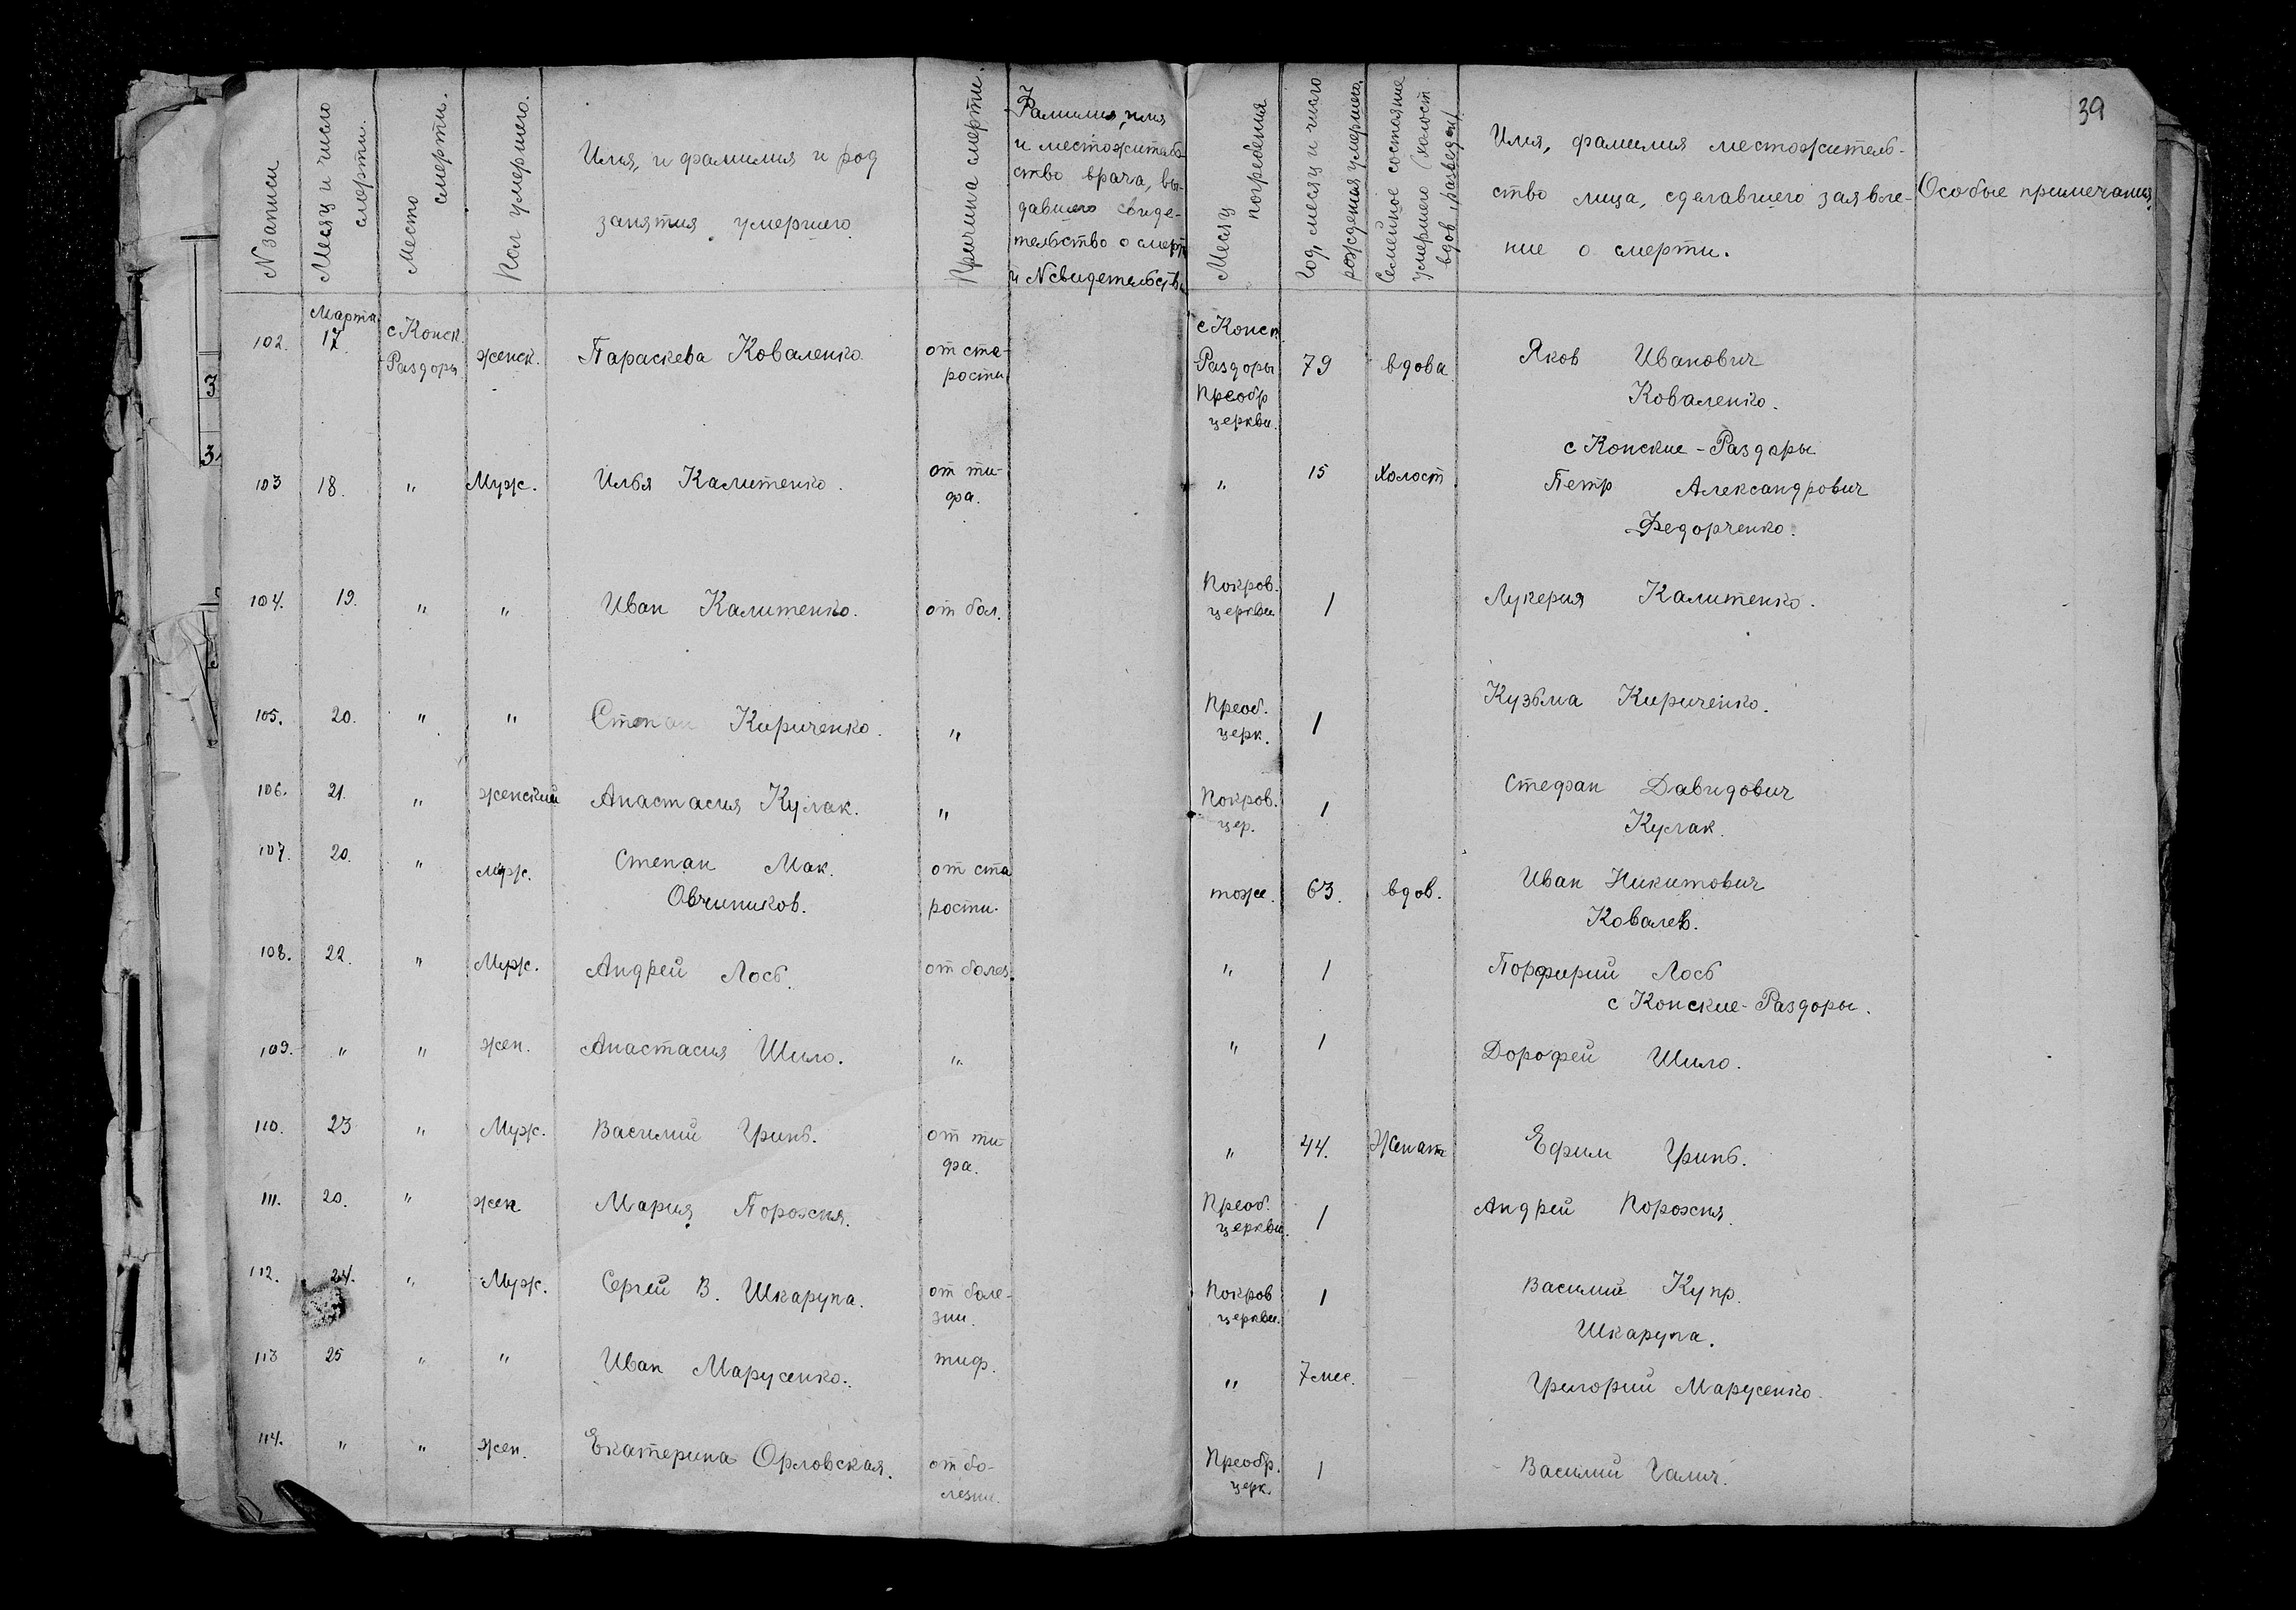 39
N записи
Месяц и число смерти.
Место смерти.
Пол умершего.
Имя, и фамилия и род
занятия умершего.
Причина смерти.
Фамилия, имя
и местожитель-
ство врача, вы-
давшего свиде-
тельство о смерт
и N свидетельств
Месяц погребения
Год, месяц и число рождения умершего.
Семейное состояние умершего (холост вдов, разведен)
Имя, фамилия местожитель-
ство лица, сделавшего заявле-
ние о смерти.
Особые примечания.
102. Марта 17. с Конск. Раздоры женск. Параскева Коваленко от ста-рости с Конск Раздоры Преобр церкви. 79 вдова Яков Иванович
Коваленко.
с Конские-Раздоры
103 18. " Муж. Илья Калитенко. от ти-фа. " 15 Холост Петр Александрович
Федорченко.
104. 19. " " Иван Калитенко. от бол. Покров. церкви 1 Лукерия Калитенко.
105. 20. " " Степан Кириченко. " Преоб. церк. 1 Кузьма Кириченко.
106. 21. " женский Анастасия Кулак. " Покров. цер. 1 Стефан Давидович
Кулак.
107. 20. " муж. Степан Мак.
Овчиников. от ста рости. тоже. 63. вдов. Иван Никитович
Ковалев.
108. 22. " Муж. Андрей Лось. от болез. " 1 Порфирий Лось
с Конские-Раздоры.
109. " " жен. Анастасия Шило. " " 1 Дорофей Шило.
110. 23 " Муж. Василий Гринь. от ти-фа. " 44. Женат Ефим Гринь.
111. 20. " жен Мария Порожня. Преоб. церкви. 1 Андрей Порожня.
112. 24. " Муж. Сергей В. Шкарупа. от боле-зни. Покров церкви. 1 Василий Купр.
Шкарупа.
113 25 " " Иван Марусенко. тиф. " 7 мес. Григорий Марусенко.
114. " " жен. Екатерина Орловская. от бо-лезни. Преобр. церк. 1 Василий Галич.